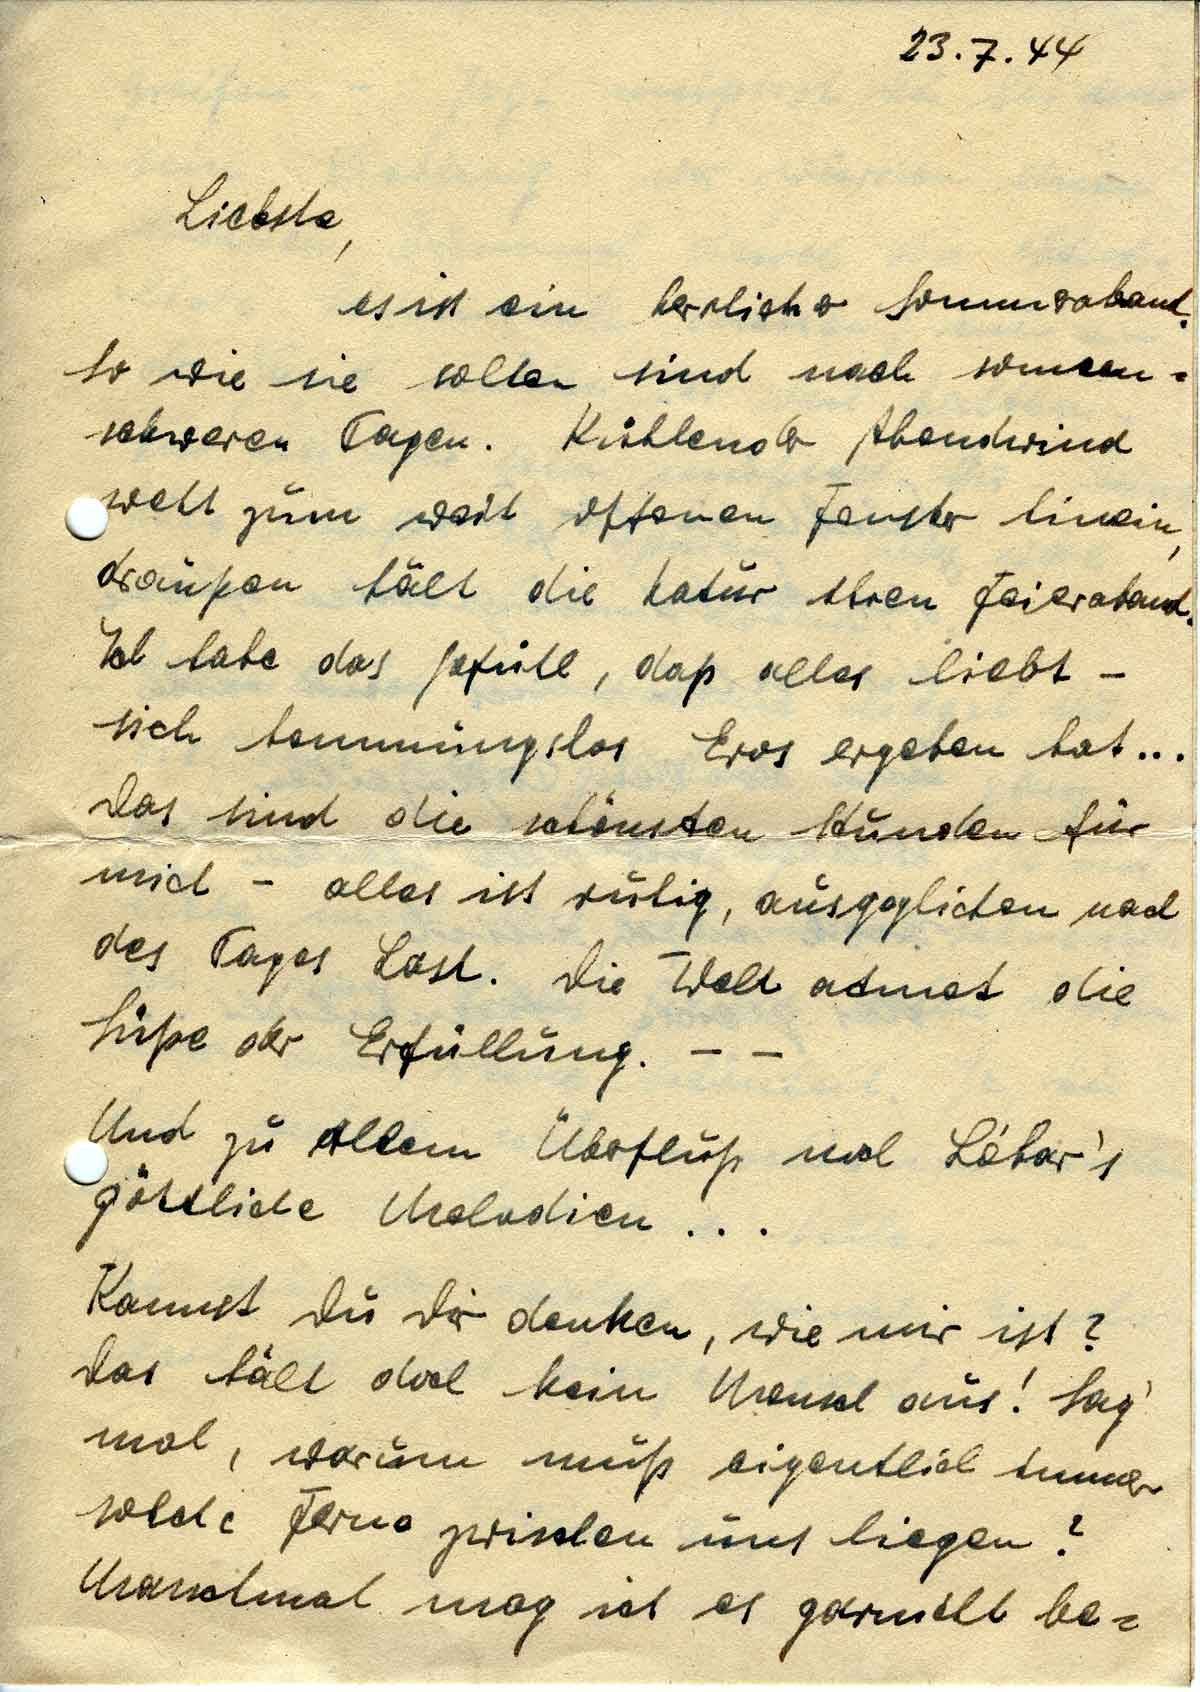 23.7.44
Liebste,
es ist ein herrlicher Sommerabend.
So wie sie selten sind nach sonnen=
schweren Tagen. Kühlender Abendwind
weht zum weit offenen Fenster hinein,
draußen hält die Natur ihren Feierabend.
Ich habe das Gefühl, daß alles liebt –
sich hemmungslos Eros ergeben hat...
Das sind die schönsten Stunden für
mich – alles ist ruhig, ausgeglichen nach
des Tages Last. Die Welt atmet die
Süße der Erfüllung. – –
Und zu allem Überfluß noch Léhar's
göttliche Melodien ...
Kannst Du Dir denken, wie mir ist?
Das hält doch kein Mensch aus! Sag'
mal, warum muß eigentlich immer
solche Ferne zwischen uns liegen?
Manchmal mag ich es garnicht be=